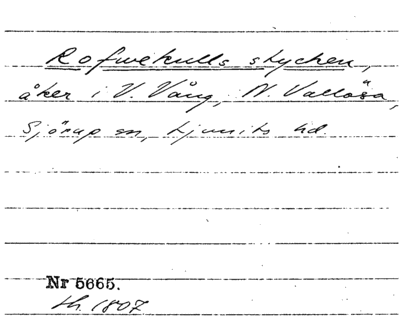 Rofwekulls stycken,
åker i V. Vång, N. Vallösa,
Sjörup sn, Ljunits hd.
Nr 5665.
th. 1807